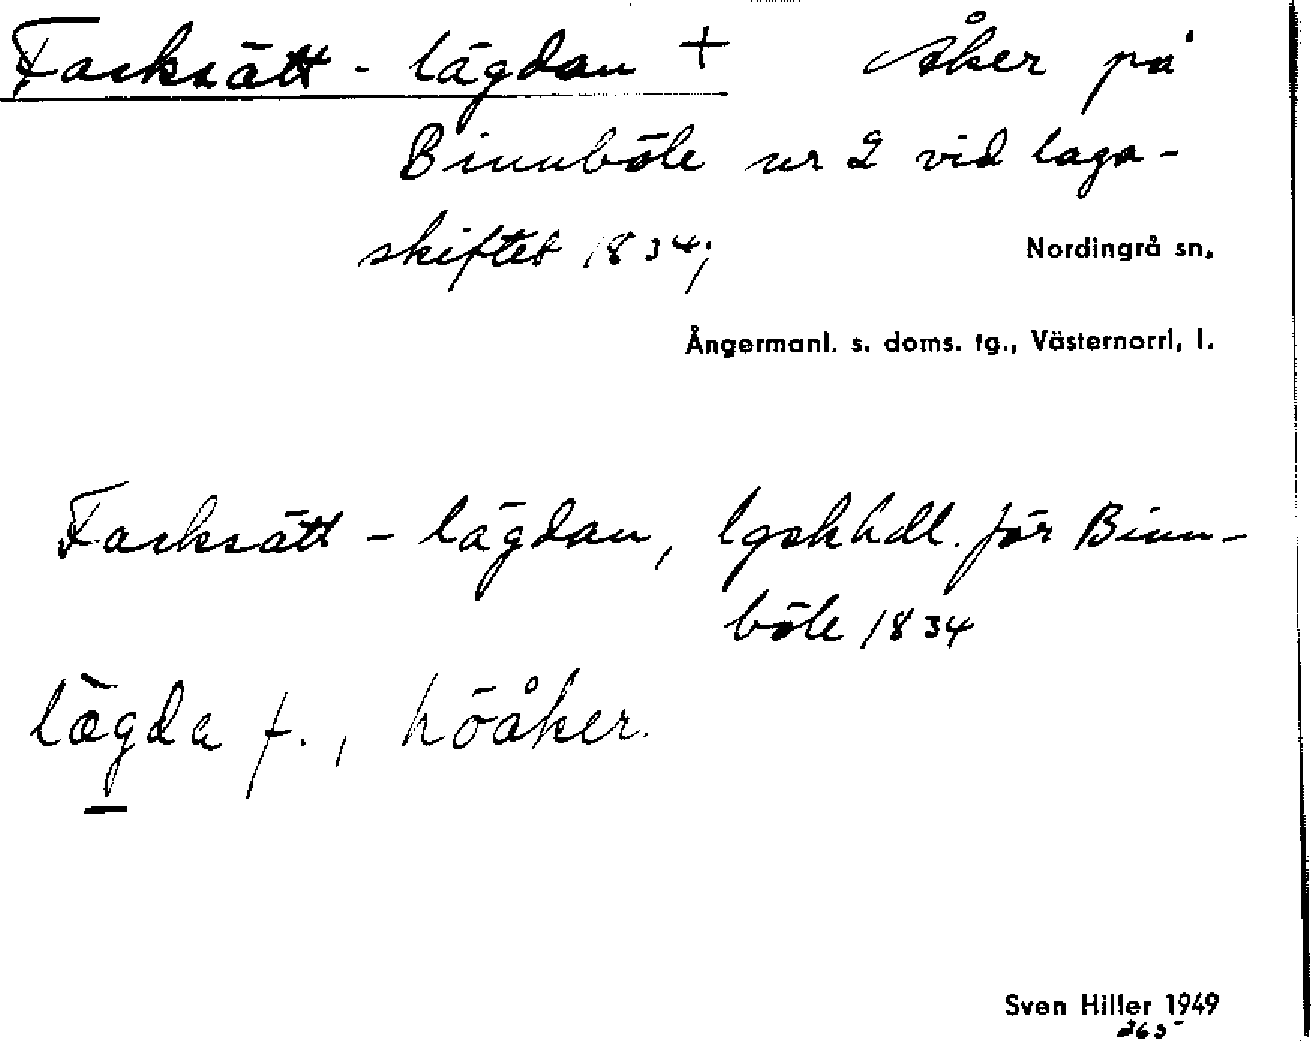 Facksätt-lägdan + Åker på
Binnböle nr 2 vid laga-
skiftet 1834;
Nordingrå sn,
Ångermanl. s. doms. tg., Västernorrl, l.
Facksätt-lägdan, lgskhdl. för Binn-
böle 1834
lægda f., höåker.
Sven Hiller 1949
365